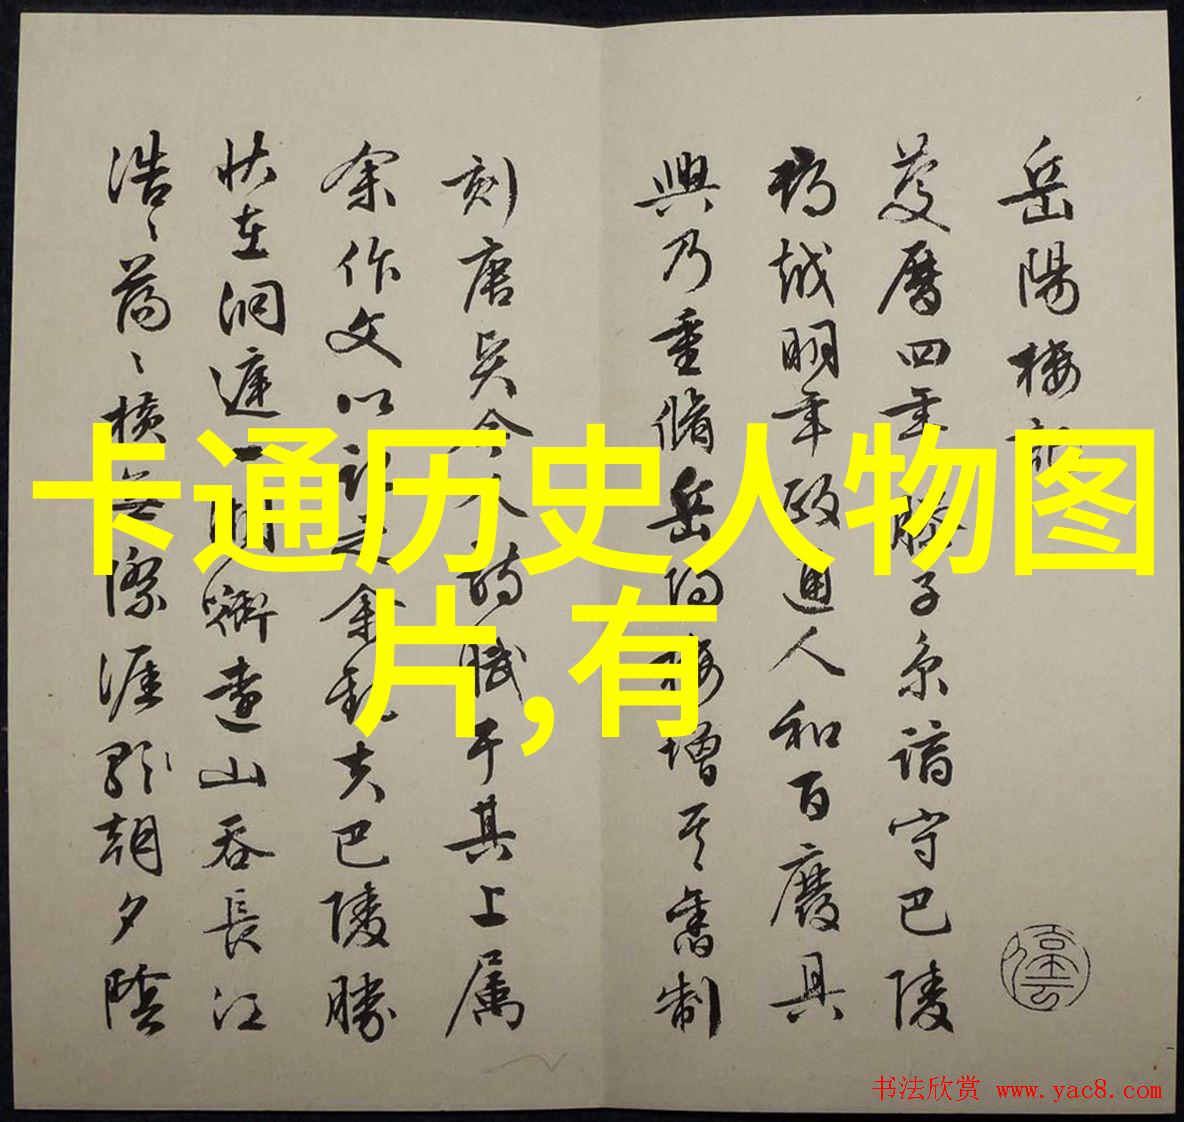 岳陽樓記
慶曆四年滕子京謫守巴陵
郡越明年政通人和百廢具
興乃重脩岳陽樓增其舊制
刻唐賢今人詩賦于其上属
余作文以記之余觀夫巴陵勝
状在洞庭一湖銜遠山吞長江
浩〻蕩〻橫無際涯朝夕陰
卡通历史人物图
片,有
书法欣赏 www.yac8.com